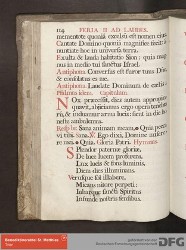 114 FERIA II AD LAUDES.
mementote quoniã excelsũ est nomen eius.
Cantate Domino quoniã magnifice fecit: an
nuntiate hoc in universa terra.
Exulta & lauda habitatio Sion: quia mag
nus in medio tui sanctus Israel.
Antiphona Conversus est furor tuus Domi
ne & consolatus es me.
Antiphona Laudate Dominum de cælis.
Capitulum.
Nox præcessit, dies autem appropin
quavit, abjiciamus ergo opera tenebra
rũ, & induamur arma lucis: sicut in die ho
neste ambulemus.
Sana animam meam. Quia pecca
vi tibi. Ego dixi, Domine miserere
mei. Quia. Gloria Patri. Hymnus
Splendor paternæ gloriæ,
De luce lucem proferens,
Lux lucis & fons luminis,
Dies dierum illuminans.
Verusque sol illabere,
Micans nitore perpeti:
Jubarque sancti Spiritus
Infunde nostris sensibus.
DFG